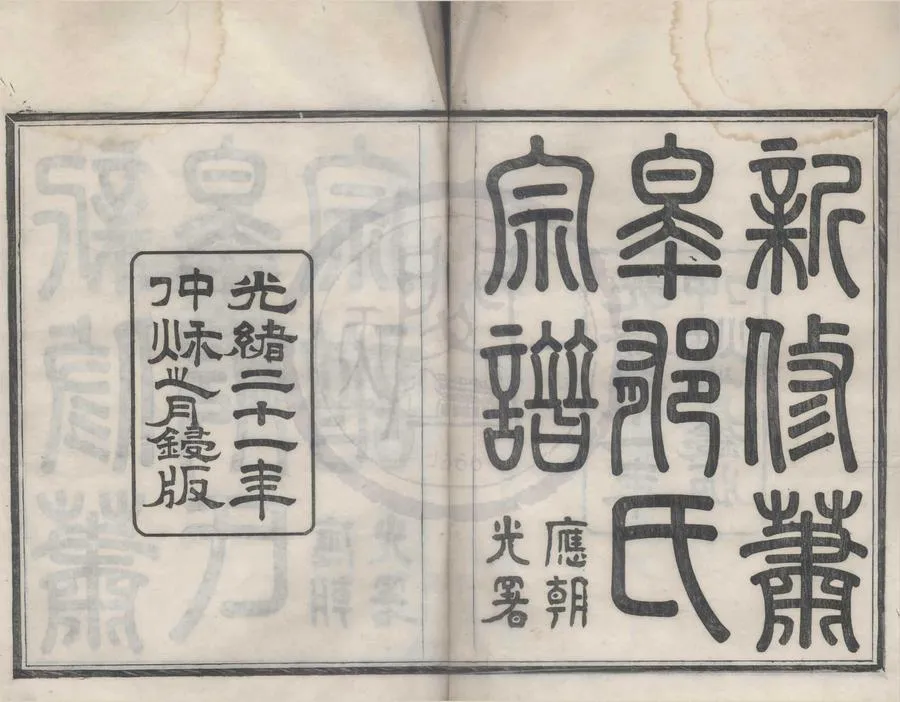 新修蕭
皋郁氏
宗譜
應朝
光署
光緒二十一年
仲秋之月鋟版